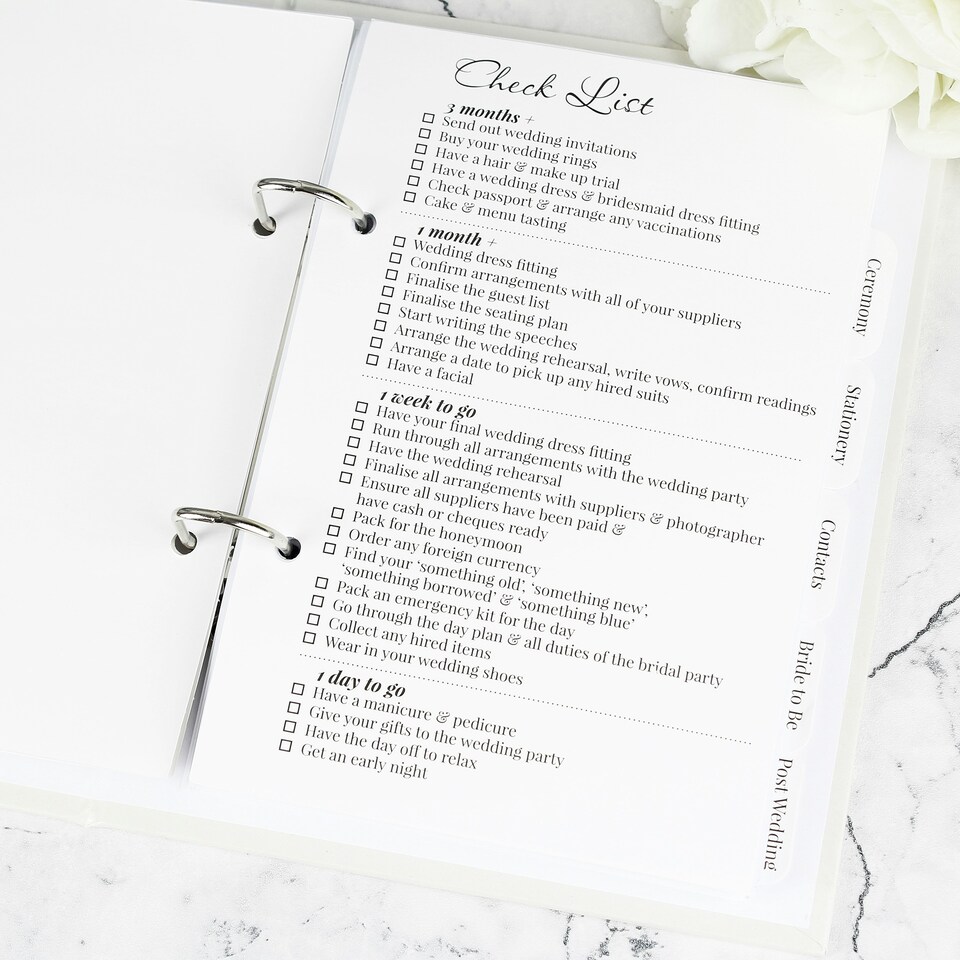 Check List
3 months +
Send out wedding invitations
Buy your wedding rings
Have a hair & make up trial
Have a wedding dress & bridesmaid dress fitting
Check passport & arrange any vaccinations
Cake & menu tasting
1 month +
Wedding dress fitting
Confirm arrangements with all of your suppliers
Finalise the guest list
Finalise the seating plan
Start writing the speeches
Arrange the wedding rehearsal, write vows, confirm readings
Arrange a date to pick up any hired suits
Have a facial
1 week to go
Have your final wedding dress fitting
Run through all arrangements with the wedding party
Have the wedding rehearsal
Finalise all arrangements with suppliers & photographer
Ensure all suppliers have been paid &
have cash or cheques ready
Pack for the honeymoon
Order any foreign currency
Find your ‘something old’, ‘something new’,
‘something borrowed’ & ‘something blue’
Pack an emergency kit for the day
Go through the day plan & all duties of the bridal party
Collect any hired items
Wear in your wedding shoes
1 day to go
Have a manicure & pedicure
Give your gifts to the wedding party
Have the day off to relax
Get an early night
Ceremony
Stationery
Contacts
Bride to Be
Post Wedding